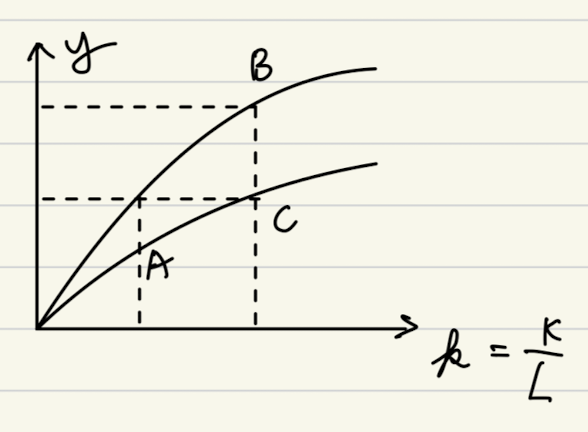 y
B
C
A
k = K/L